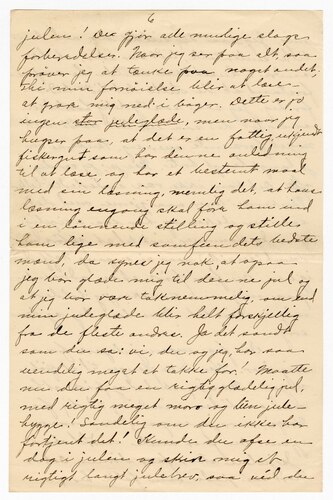 6
julen! Der gjör alle mulige slags
forberedelser. Naar jeg ser paa alt, saa
pröver jeg at tænke paa noget andet,
thi min fornöielse blir at læse
at grave mig ned i böger. Dette er jo
ingen stor juleglæde, men naar jeg
husper paa, at det er en fattig, ukjendt
fiskergut som har denne anledning
til at læse, og har et bestemt maal
med sin læsning, nemlig det, at hans
læsning engang skal före ham ind
i en lönnende stilling og stille
ham lige med samfundets bedste
mænd, da synes jeg nok, at ogsaa
jeg bör glæde mig til denne jul og
at jeg bör være taknemmelig, om end
min juleglæde blir helt forskjellig
fra de fleste andre. Ja det sandt
som du sa: vi, du og jeg, har saa
uendelig meget at takke for! Maatte
nu du faa en rigtig glædelig jul,
med rigtig meget moro og liten jule-
hygge! Sandelig om du ikke har
fortjent det! Kunde du ofre en
dag i julen og skrive mig et
rigtigt langt julebrev, saa ved du